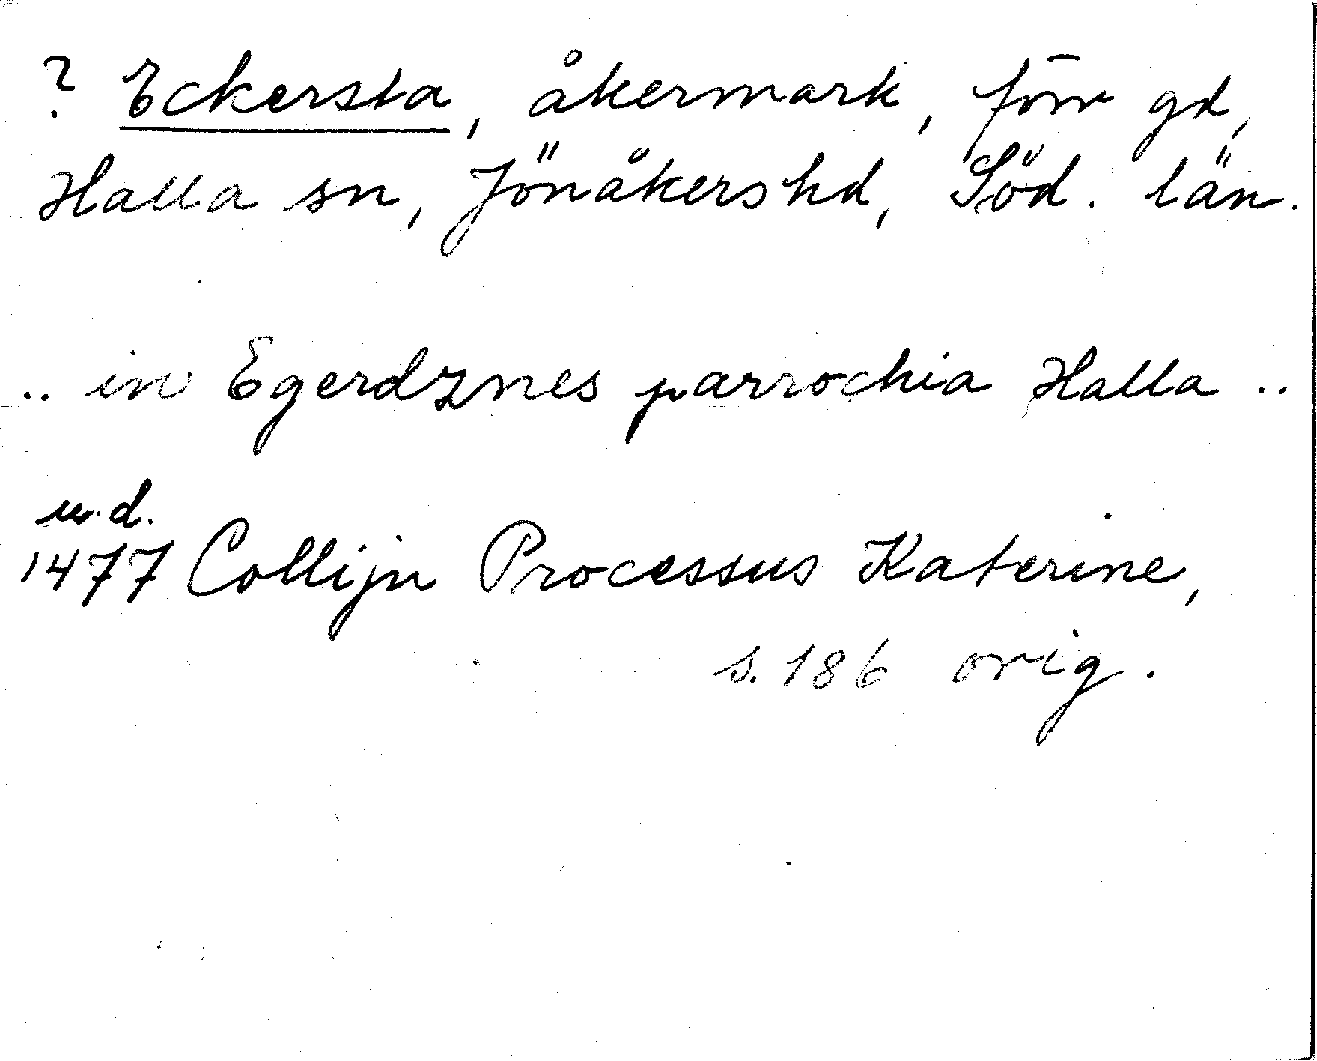 ? Eckersta, åkermark, förr gd,
Halla sn, Jönåkers hd, Söd. län.
.. in Egerdznes parrochia Halla ..
u.d.
1477 Collijn Processus Katerine,
s. 186 orig.